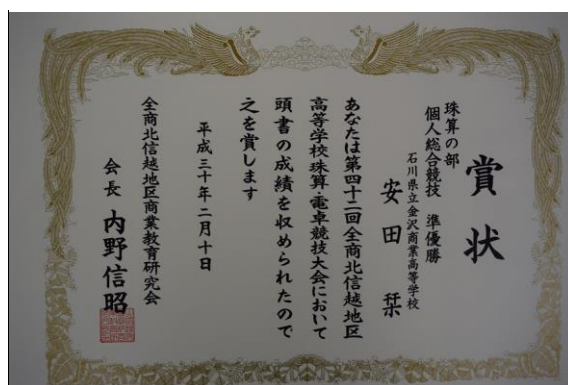 賞状
珠算の部
個人総合競技　準優勝
石川県立金沢商業高等学校
安田　栞
あなたは第四十二回全商北信越地区
高等学校珠算・電卓競技大会において
頭書の成績を収められたので
之を賞します
平成三十年二月十日
全商北信越地区商業教育研究会
会長　内野信昭